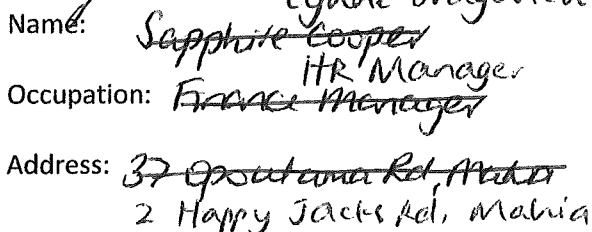 Name: Sapphire Cooper
HR Manager
Occupation: Finance Manager
Address: 37 Opoutama Rd, Mahia
2 Happy Jacks Rd, Mahia